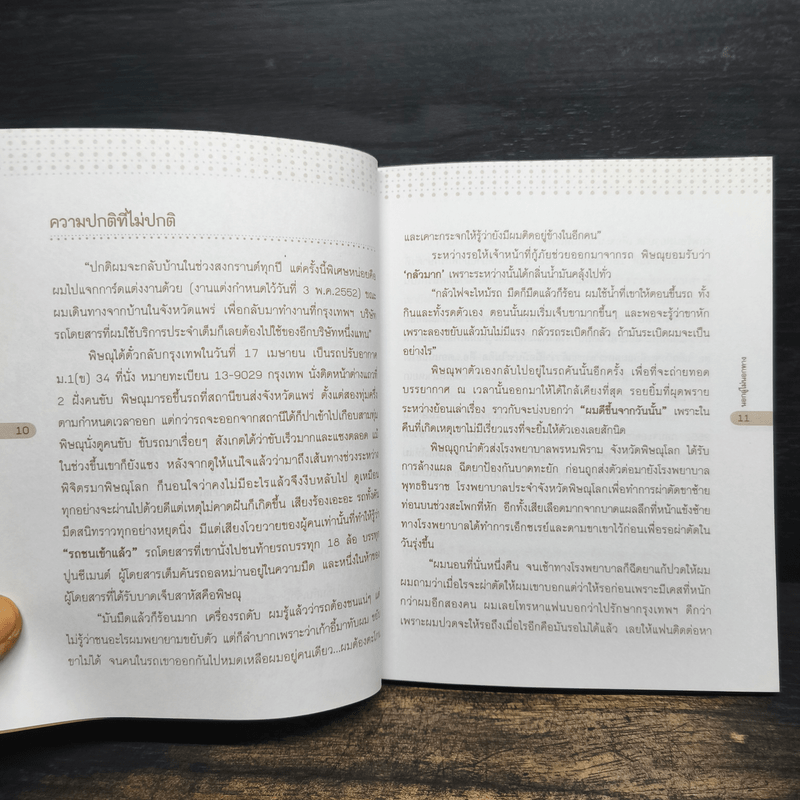 ความปกติที่ไม่ปกติ
“ปกติผมจะกลับบ้านในช่วงสงกรานต์ทุกปี แต่ครั้งนี้พิเศษหน่อยคือ
ผมไปแจกการ์ดแต่งงานด้วย (งานแต่งกำหนดไว้วันที่ 3 พ.ค.2552) ขณะ
ผมเดินทางจากบ้านในจังหวัดแพร่ เพื่อกลับมาทำงานที่กรุงเทพฯ บริษัท
รถโดยสารที่ผมใช้บริการประจำเต็มก็เลยต้องไปใช้ของอีกบริษัทหนึ่งแทน”
พิษณุได้ตั๋วกลับกรุงเทพในวันที่ 17 เมษายน เป็นรถปรับอากาศ
ม.1(ข) 34 ที่นั่ง หมายทะเบียน 13-9029 กรุงเทพ นั่งติดหน้าต่างแถวที่
2 ฝั่งคนขับ พิษณุมารอขึ้นรถที่สถานีขนส่งจังหวัดแพร่ ตั้งแต่สองทุ่มครึ่ง
ตามกำหนดเวลาออก แต่กว่ารถจะออกจากสถานีได้ก็ปาเข้าไปเกือบสามทุ่ม
พิษณุนั่งดูคนขับ ขับรถมาเรื่อยๆ สังเกตได้ว่าขับเร็วมากและแซงตลอด แม้
ในช่วงขึ้นเขาก็ยังแซง หลังจากดูให้แน่ใจแล้วว่ามาถึงเส้นทางช่วงระหว่าง
พิจิตรมาพิษณุโลก ก็นอนใจว่าคงไม่มีอะไรแล้วจึงงีบหลับไป ดูเหมือน
ทุกอย่างจะผ่านไปด้วยดีแต่เหตุไม่คาดฝันก็เกิดขึ้น เสียงร้องเอะอะ รถทั้งคัน
มืดสนิทราวทุกอย่างหยุดนิ่ง มีแต่เสียงโวยวายของผู้คนเท่านั้นที่ทำให้รู้ว่า
“รถชนเข้าแล้ว” รถโดยสารที่เขานั่งไปชนท้ายรถบรรทุก 18 ล้อ บรรทุก
ปูนซีเมนต์ ผู้โดยสารเต็มคันรถอลหม่านอยู่ในความมืด และหนึ่งในห้าของ
ผู้โดยสารที่ได้รับบาดเจ็บสาหัสคือพิษณุ
“มันมืดแล้วก็ร้อนมาก เครื่องรถดับ ผมรู้แล้วว่ารถต้องชนแน่ๆ แต่
ไม่รู้ว่าชนอะไรผมพยายามขยับตัว แต่ก็ลำบากเพราะว่าเก้าอี้มาทับผม ขยับ
ขาไม่ได้ จนคนในรถเขาออกกันไปหมดเหลือผมอยู่คนเดียว...ผมต้องตะโกน
10
และเคาะกระจกให้รู้ว่ายังมีผมติดอยู่ข้างในอีกคน”
ระหว่างรอให้เจ้าหน้าที่กู้ภัยช่วยออกมาจากรถ พิษณุยอมรับว่า
‘กลัวมาก’ เพราะระหว่างนั้นได้กลิ่นน้ำมันคลุ้งไปทั่ว
“กลัวไฟจะไหม้รถ มืดก็มืดแล้วก็ร้อน ผมใช้น้ำที่เขาให้ตอนขึ้นรถ ทั้ง
กินและทั้งรดตัวเอง ตอนนั้นผมเริ่มเจ็บขามากขึ้นๆ และพอจะรู้ว่าขาหัก
เพราะลองขยับแล้วมันไม่มีแรง กลัวรถระเบิดก็กลัว ถ้ามันระเบิดผมจะเป็น
อย่างไร”
พิษณุพาตัวเองกลับไปอยู่ในรถคันนั้นอีกครั้ง เพื่อที่จะถ่ายทอด
บรรยากาศ ณ เวลานั้นออกมาให้ได้ใกล้เคียงที่สุด รอยยิ้มที่ผุดพราย
ระหว่างย้อนเล่าเรื่อง ราวกับจะบ่งบอกว่า “ผมดีขึ้นจากวันนั้น” เพราะใน
คืนที่เกิดเหตุเขาไม่มีเรี่ยวแรงที่จะยิ้มให้ตัวเองเลยสักนิด
พิษณุถูกนำตัวส่งโรงพยาบาลพรหมพิราม จังหวัดพิษณุโลก ได้รับ
การล้างแผล ฉีดยาป้องกันบาดทะยัก ก่อนถูกส่งตัวต่อมายังโรงพยาบาล
พุทธชินราช โรงพยาบาลประจำจังหวัดพิษณุโลกเพื่อทำการผ่าตัดขาซ้าย
ท่อนบนช่วงสะโพกที่หัก อีกทั้งเสียเลือดมากจากบาดแผลลึกที่หน้าแข้งซ้าย
ทางโรงพยาบาลได้ทำการเอ็กซเรย์และดามขาเขาไว้ก่อนเพื่อรอผ่าตัดใน
วันรุ่งขึ้น
“ผมนอนที่นั่นหนึ่งคืน จนเช้าทางโรงพยาบาลก็ฉีดยาแก้ปวดให้ผม
ผมถามว่าเมื่อไรจะผ่าตัดให้ผมเขาบอกแต่ว่าให้รอก่อนเพราะมีเคสที่หนัก
กว่าผมอีกสองคน ผมเลยโทรหาแฟนบอกว่าไปรักษากรุงเทพฯ ดีกว่า
เพราะผมปวดจะให้รอถึงเมื่อไรอีกคือมันรอไม่ได้แล้ว เลยให้แฟนติดต่อหา
นอกผู้ไม่นอกทาง
11